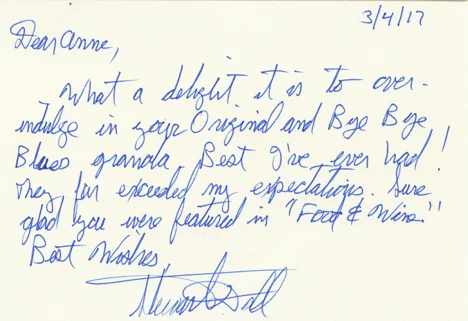 3/4/17
Dear Anne,
What a delight it is to over-
indulge in your Original and Bye Bye
Blues granola. Best I've ever had!
They far exceeded my expectations. Sure
glad you were featured in "Food & Wine"
Best Wishes,